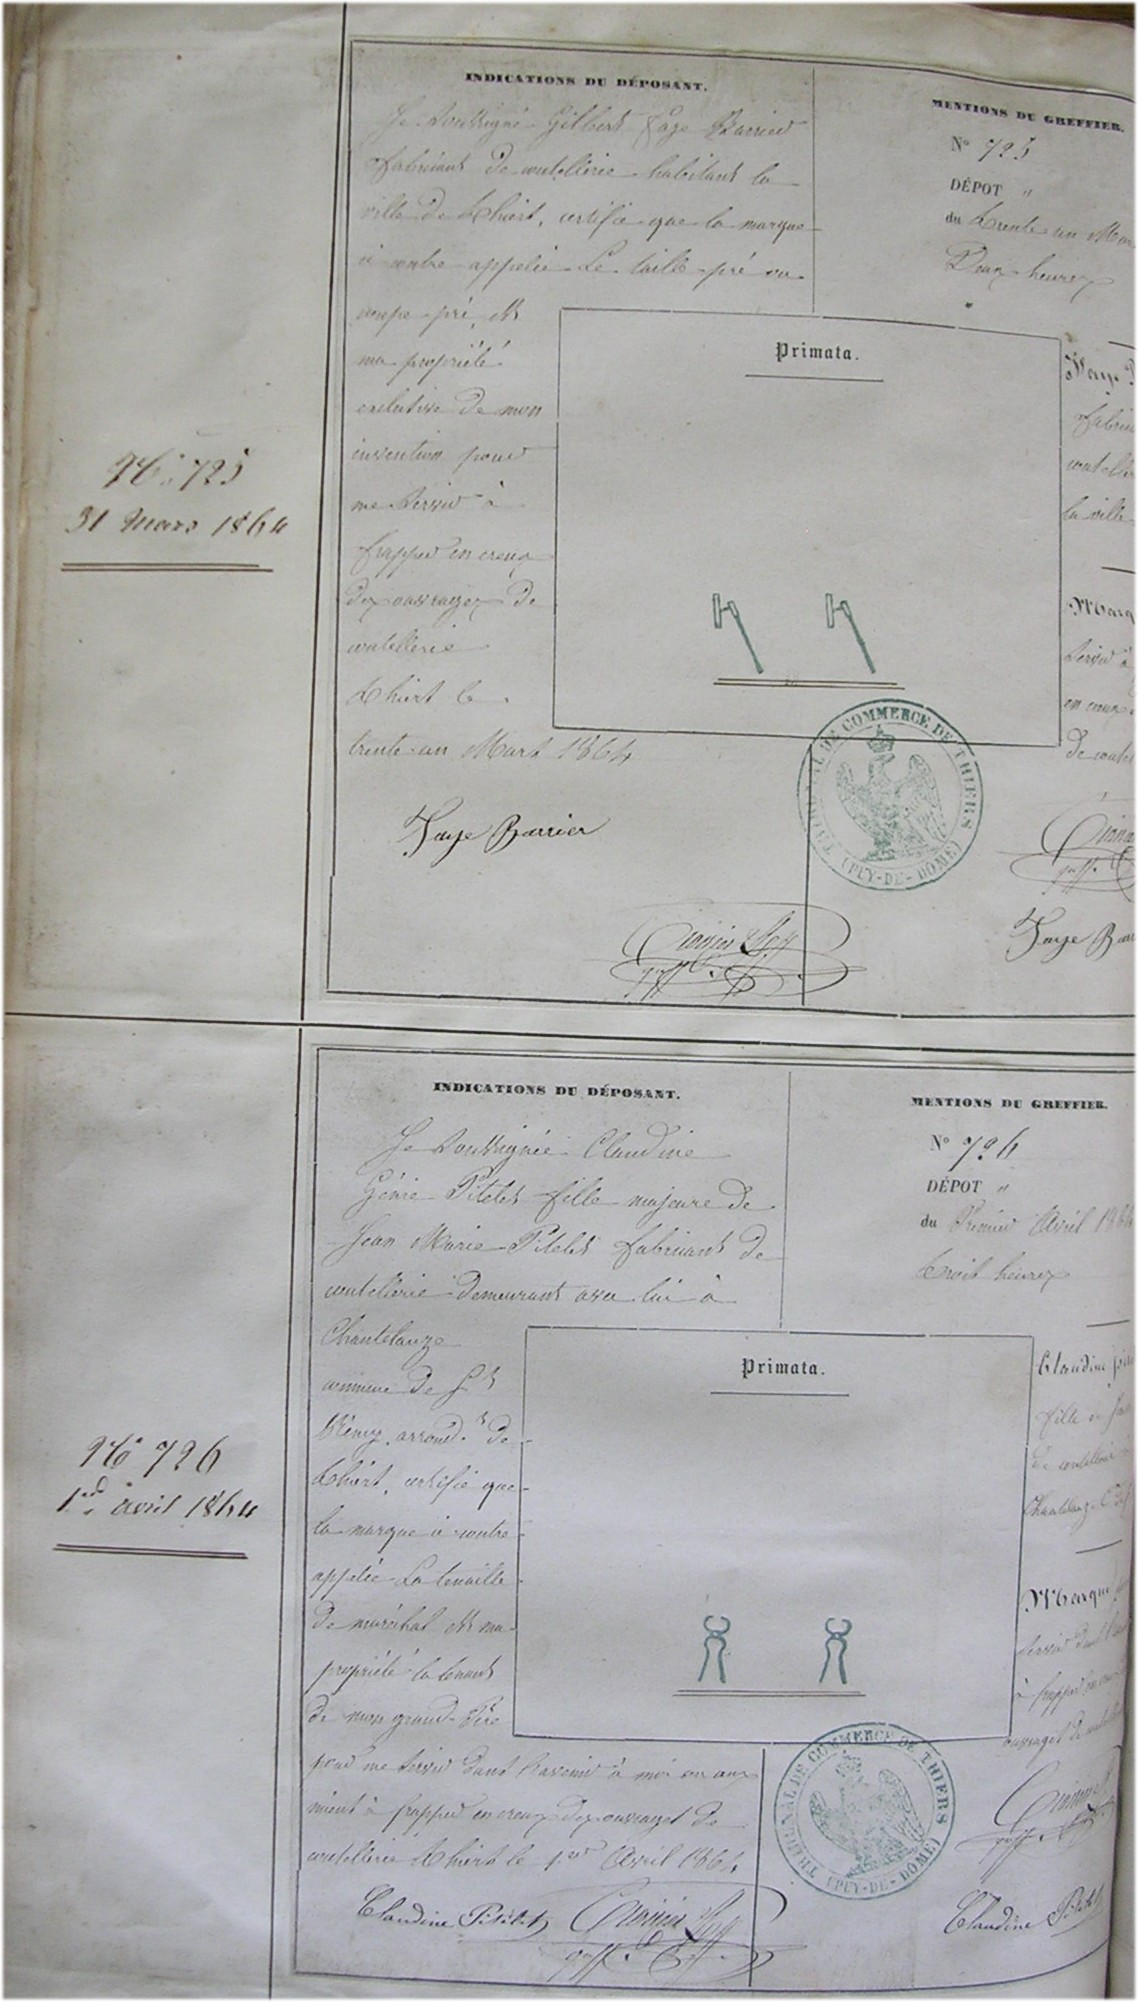 N° 725
31 Mars 1864
INDICATIONS DU DÉPOSANT.
Je Soussigné Gilbert Faye Barrier
fabricant de coutellerie habitant la
ville de Thiers, certifie que la marque
ci contre appelée Le taille pré ou
coupe pré, est
ma propriété
exclusive de mon
invention pour
me Servir à
frapper en creux
des ouvrages de
coutellerie
Thiers le
trente un Mars 1864
Faye Barrier
Primata.
MENTIONS DU GREFFIER.
N° 725
DÉPOT "
du trente un Mars
Deux heures
Faye
coutelle
la ville
Servir à
en creux
TRIBUNAL DE COMMERCE DE THIERS
(PUY-DE-DOME)
Faye Barr
N° 726
1er avril 1864
INDICATIONS DU DÉPOSANT.
Je Soussignée Claudine
Génie Pitelet fille majeure de
Jean Marie Pitelet fabricant de
coutellerie demeurant avec lui à
Chantelauze
commune de St
Rémy, arrond.t de
Thiers, certifie que
la marque ci contre
appelée La tenaille
de maréchal est ma
propriété la tenant
de mon grand-Père
pour me Servir dans l'avenir à moi ou aux
miens à frapper en creux des ouvrages de
coutellerie Thiers le 1er Avril 1864
Claudine Pitelet
Primata.
MENTIONS DU GREFFIER.
N° 726
DÉPOT "
du Premier Avril 1864
trois heures
Claudine
fille de
de coutellerie
Marque
à frapper en
ouvrages de
TRIBUNAL DE COMMERCE DE THIERS
(PUY-DE-DOME)
Claudine Pitelet